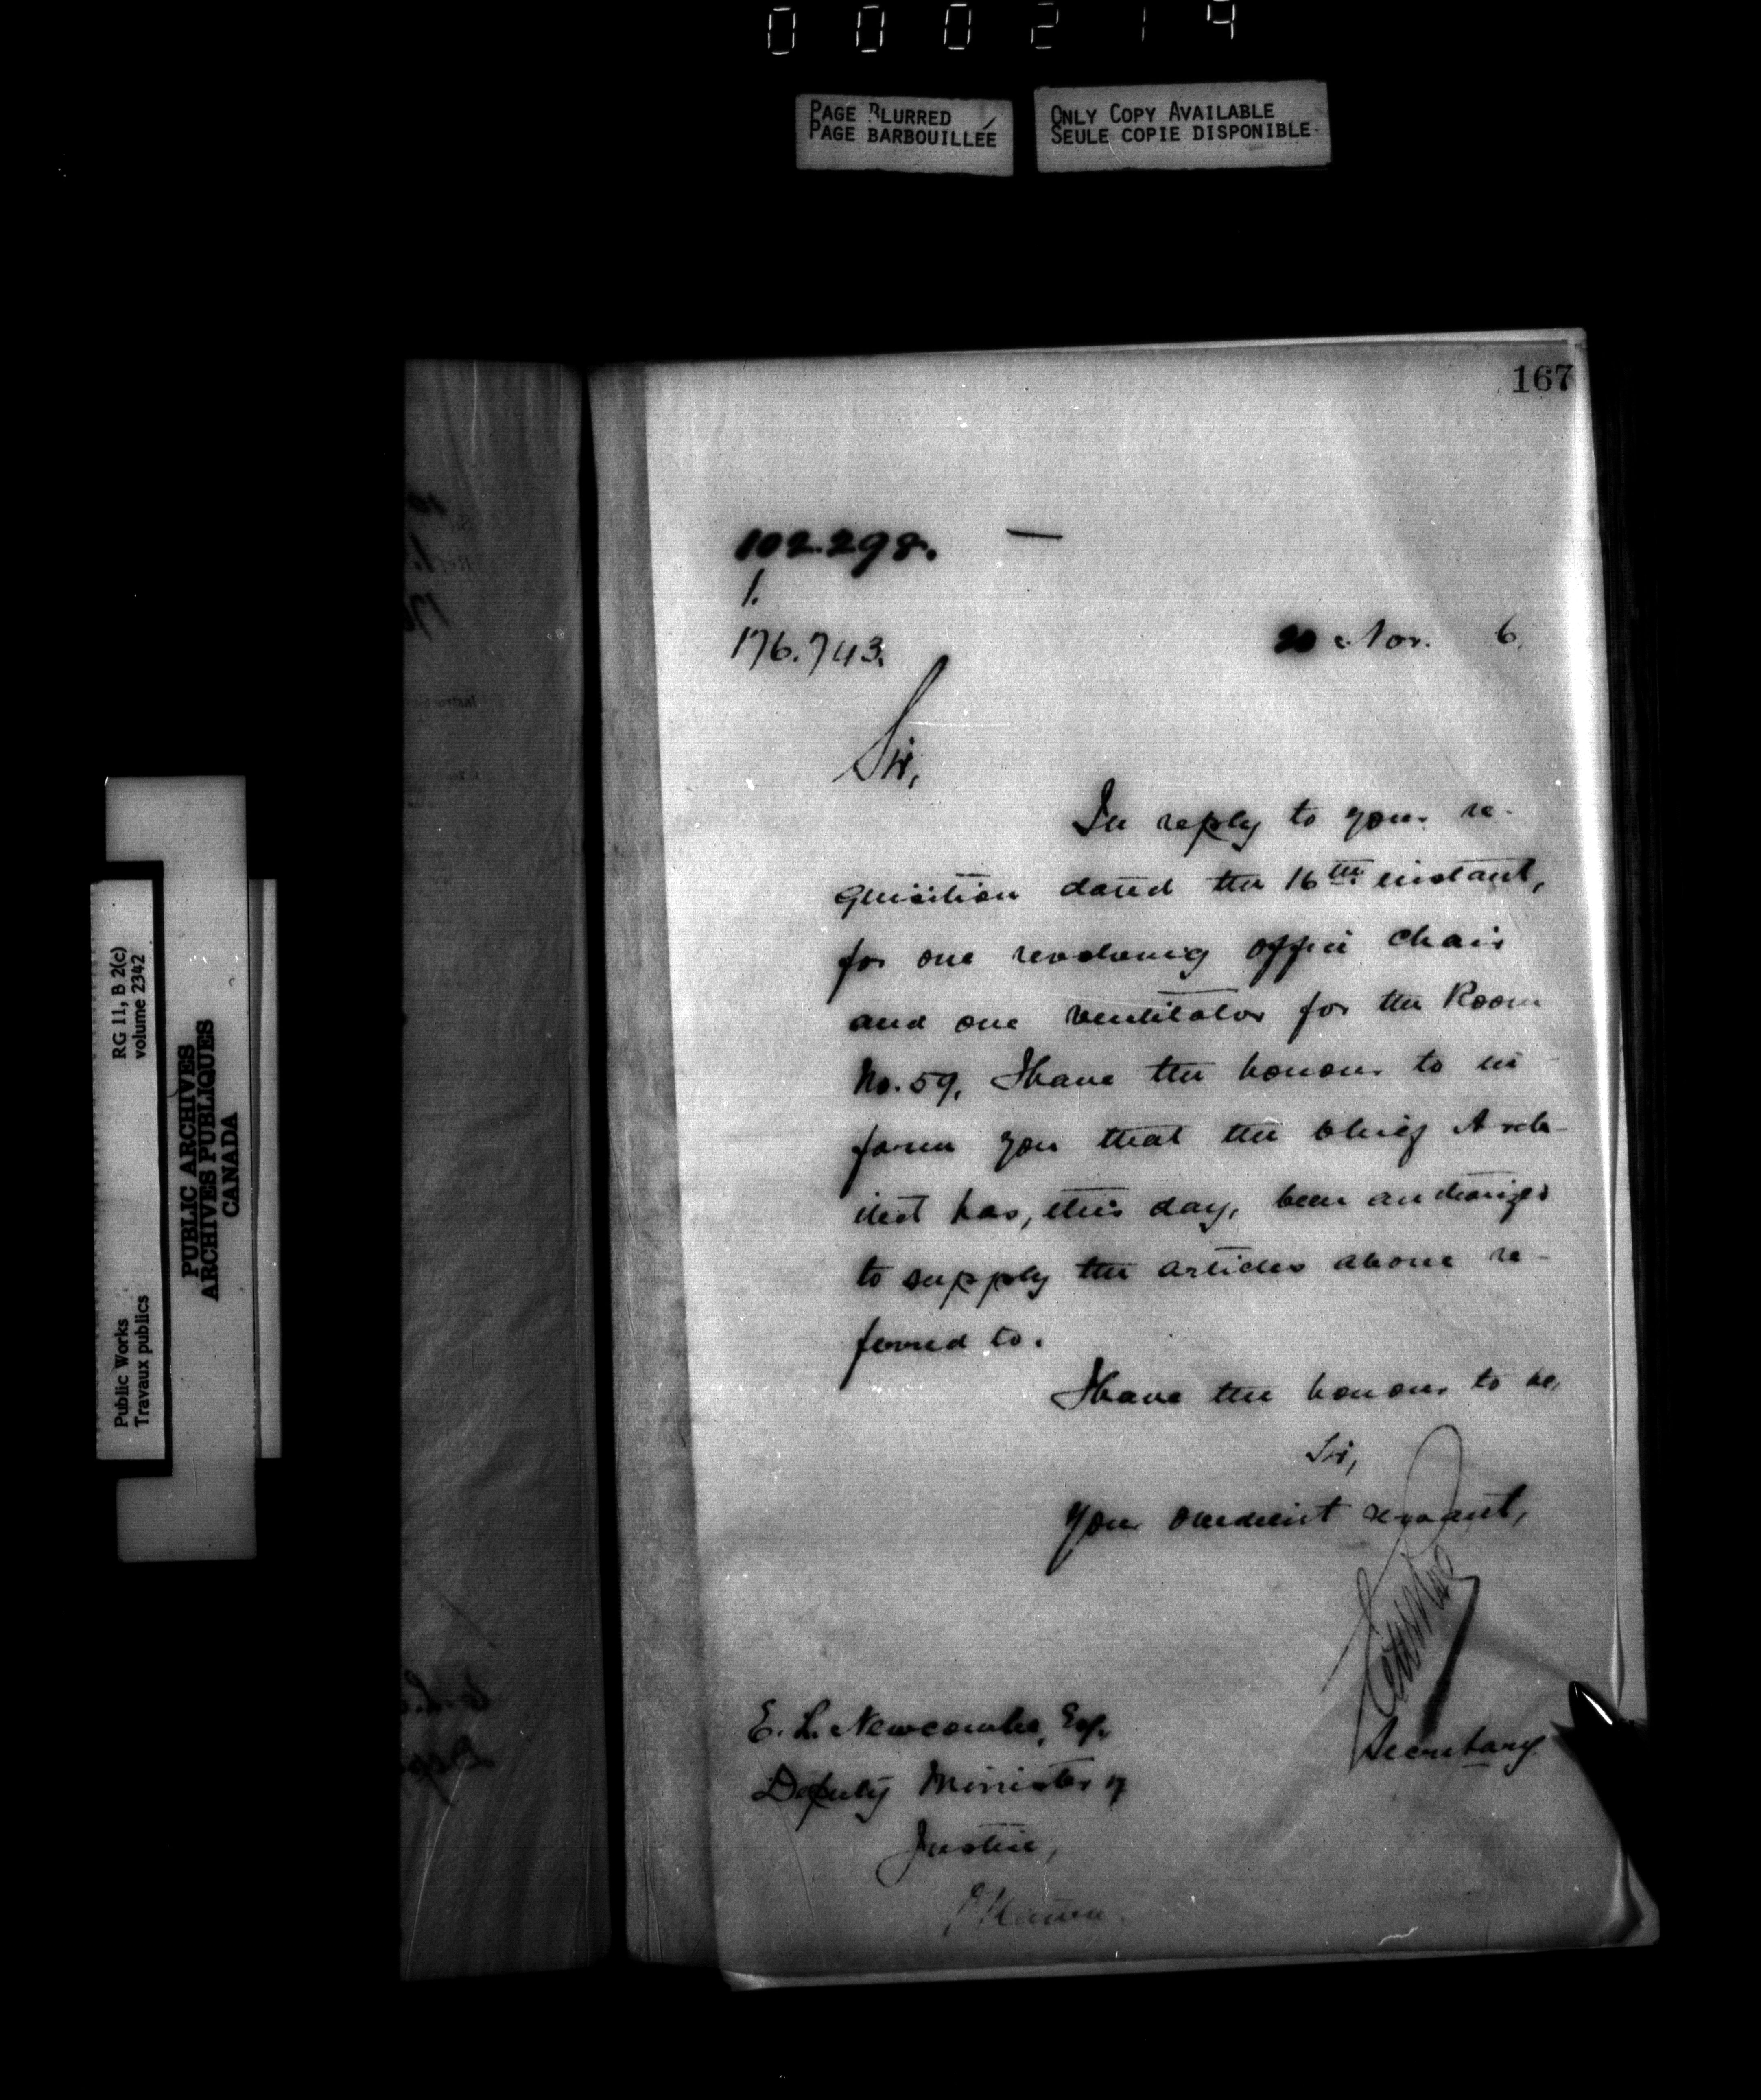 000219
PAGE BLURRED
PAGE BARBOUILLÉE
ONLY COPY AVAILABLE
SEULE COPIE DISPONIBLE
167
102.298.
1.
176.743.
20 Nov. 6.
Sir,
In reply to your re-
quisition dated the 16th instant,
for one revolving office chair
and one ventilator for the Room
No. 59, I have the honour to in-
form you that the Chief Arch-
itect has, this day, been authorized
to supply the articles above re-
ferred to.
I have the honour to be,
Sir,
Your obedient servant,
Secretary
E. L. Newcombe, Esq.
Deputy Minister of
Justice,
Ottawa.
RG 11, B 2(c)
volume 2342
Public Works
Travaux publics
PUBLIC ARCHIVES
ARCHIVES PUBLIQUES
CANADA